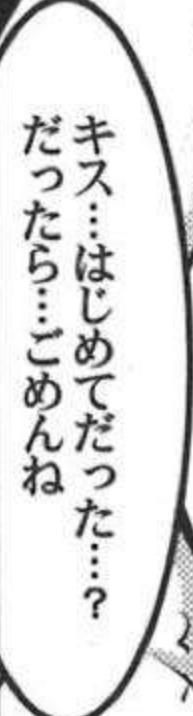 キス…はじめてだった…？
だったら…ごめんね